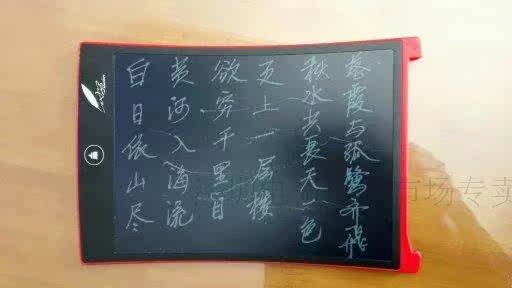 白日依山尽
黄河入海流
欲穷千里目
更上一层楼
秋水共長天一色
落霞与孤鹜齐飛
市场专卖